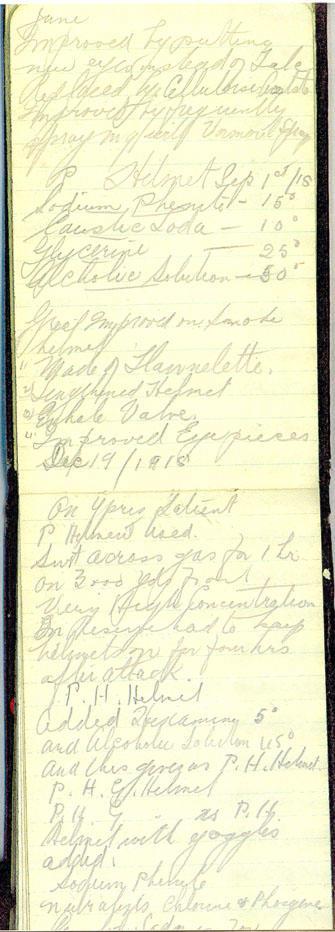 June
Improved by putting
new eyes instead of Talc
Replaced by Cellulose
Improved by frequently
spraying with Vermorel Spray
P Helmet Sep 1st/15
Sodium Phenylet - 15°
Caustic Soda - 10°
Glycerine - 25°
Alcholic Solution - 50°
Great Improved on Smoke
helmet
1) Made of Flannelette.
2) Lengthened Helmet
3) Exhale Valve.
4) Improved Eyepieces
Dec 19/1915
On Ypres Salient
P Helmet Used.
Sent across gas for 1 hr
on 3000 yds front
Very High Concentration
In reserve had to keep
helmets on for four hrs
after attack.
P.H. Helmet
added Hexamine 5°
and Alcoholic Solution 45°
And this gives us P.H. Helmet
P.H.G. Helmet
P.H.G. as P.H.
Helmet with goggles
added.
Sodium Phenyle
nutralizes Chlorine & Phosgene